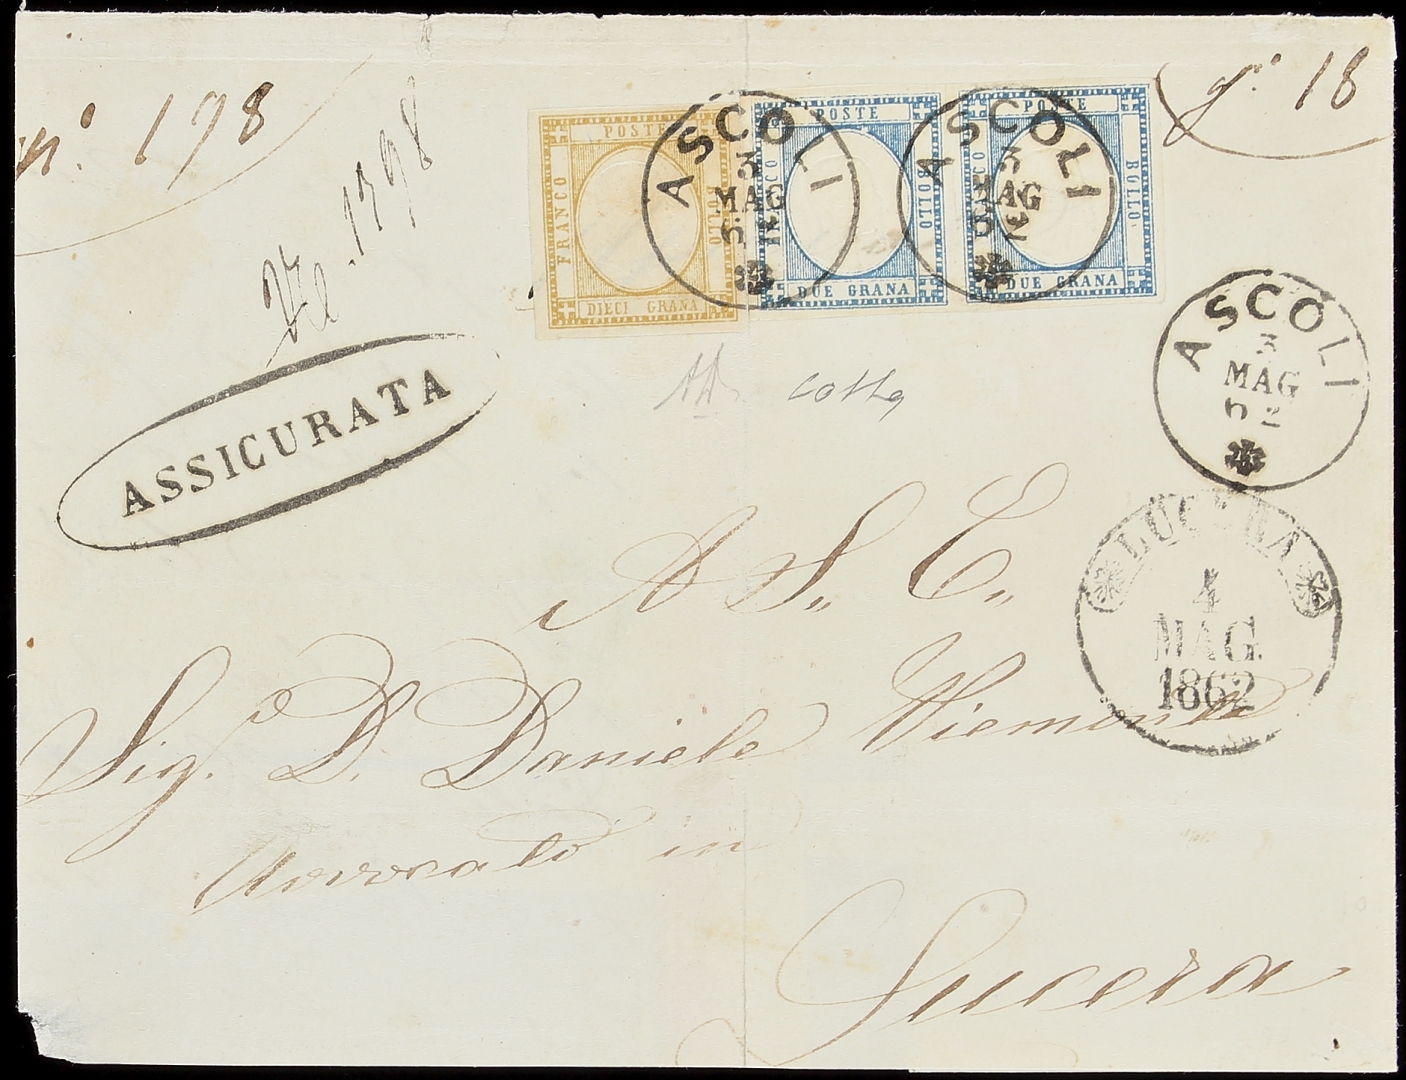 n.° 198
N° 1798
g.ª 18
POSTE
FRANCO
BOLLO
DIECI GRANA
POSTE
FRANCO
BOLLO
DUE GRANA
POSTE
BOLLO
DUE GRANA
ASCOLI
3
MAG
62
ASCOLI
3
MAG
62
ASCOLI
3
MAG
62
ASSICURATA
LUCERA
4
MAG.
1862
A S,, E,,
Sig. D. Daniele
Avvocato in
Lucera